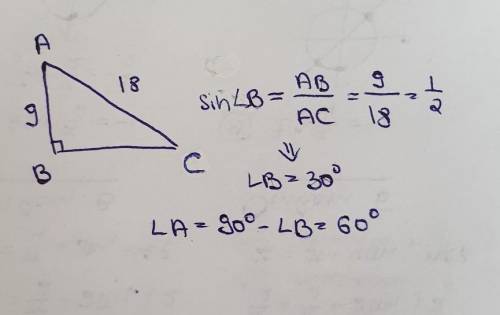 A
18
9
B
C
sin∠B = AB/AC = 9/18 = 1/2
⇓
∠B = 30°
∠A = 90° - ∠B = 60°